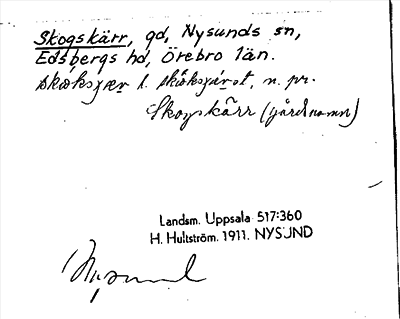 Skogskärr, gd, Nysunds sn,
Edsbergs hd, Örebro län.
n. pr.
Skogskärr (gårdnamn)
Landsm. Uppsala 517:360
H. Hultström. 1911. NYSUND
Nysund